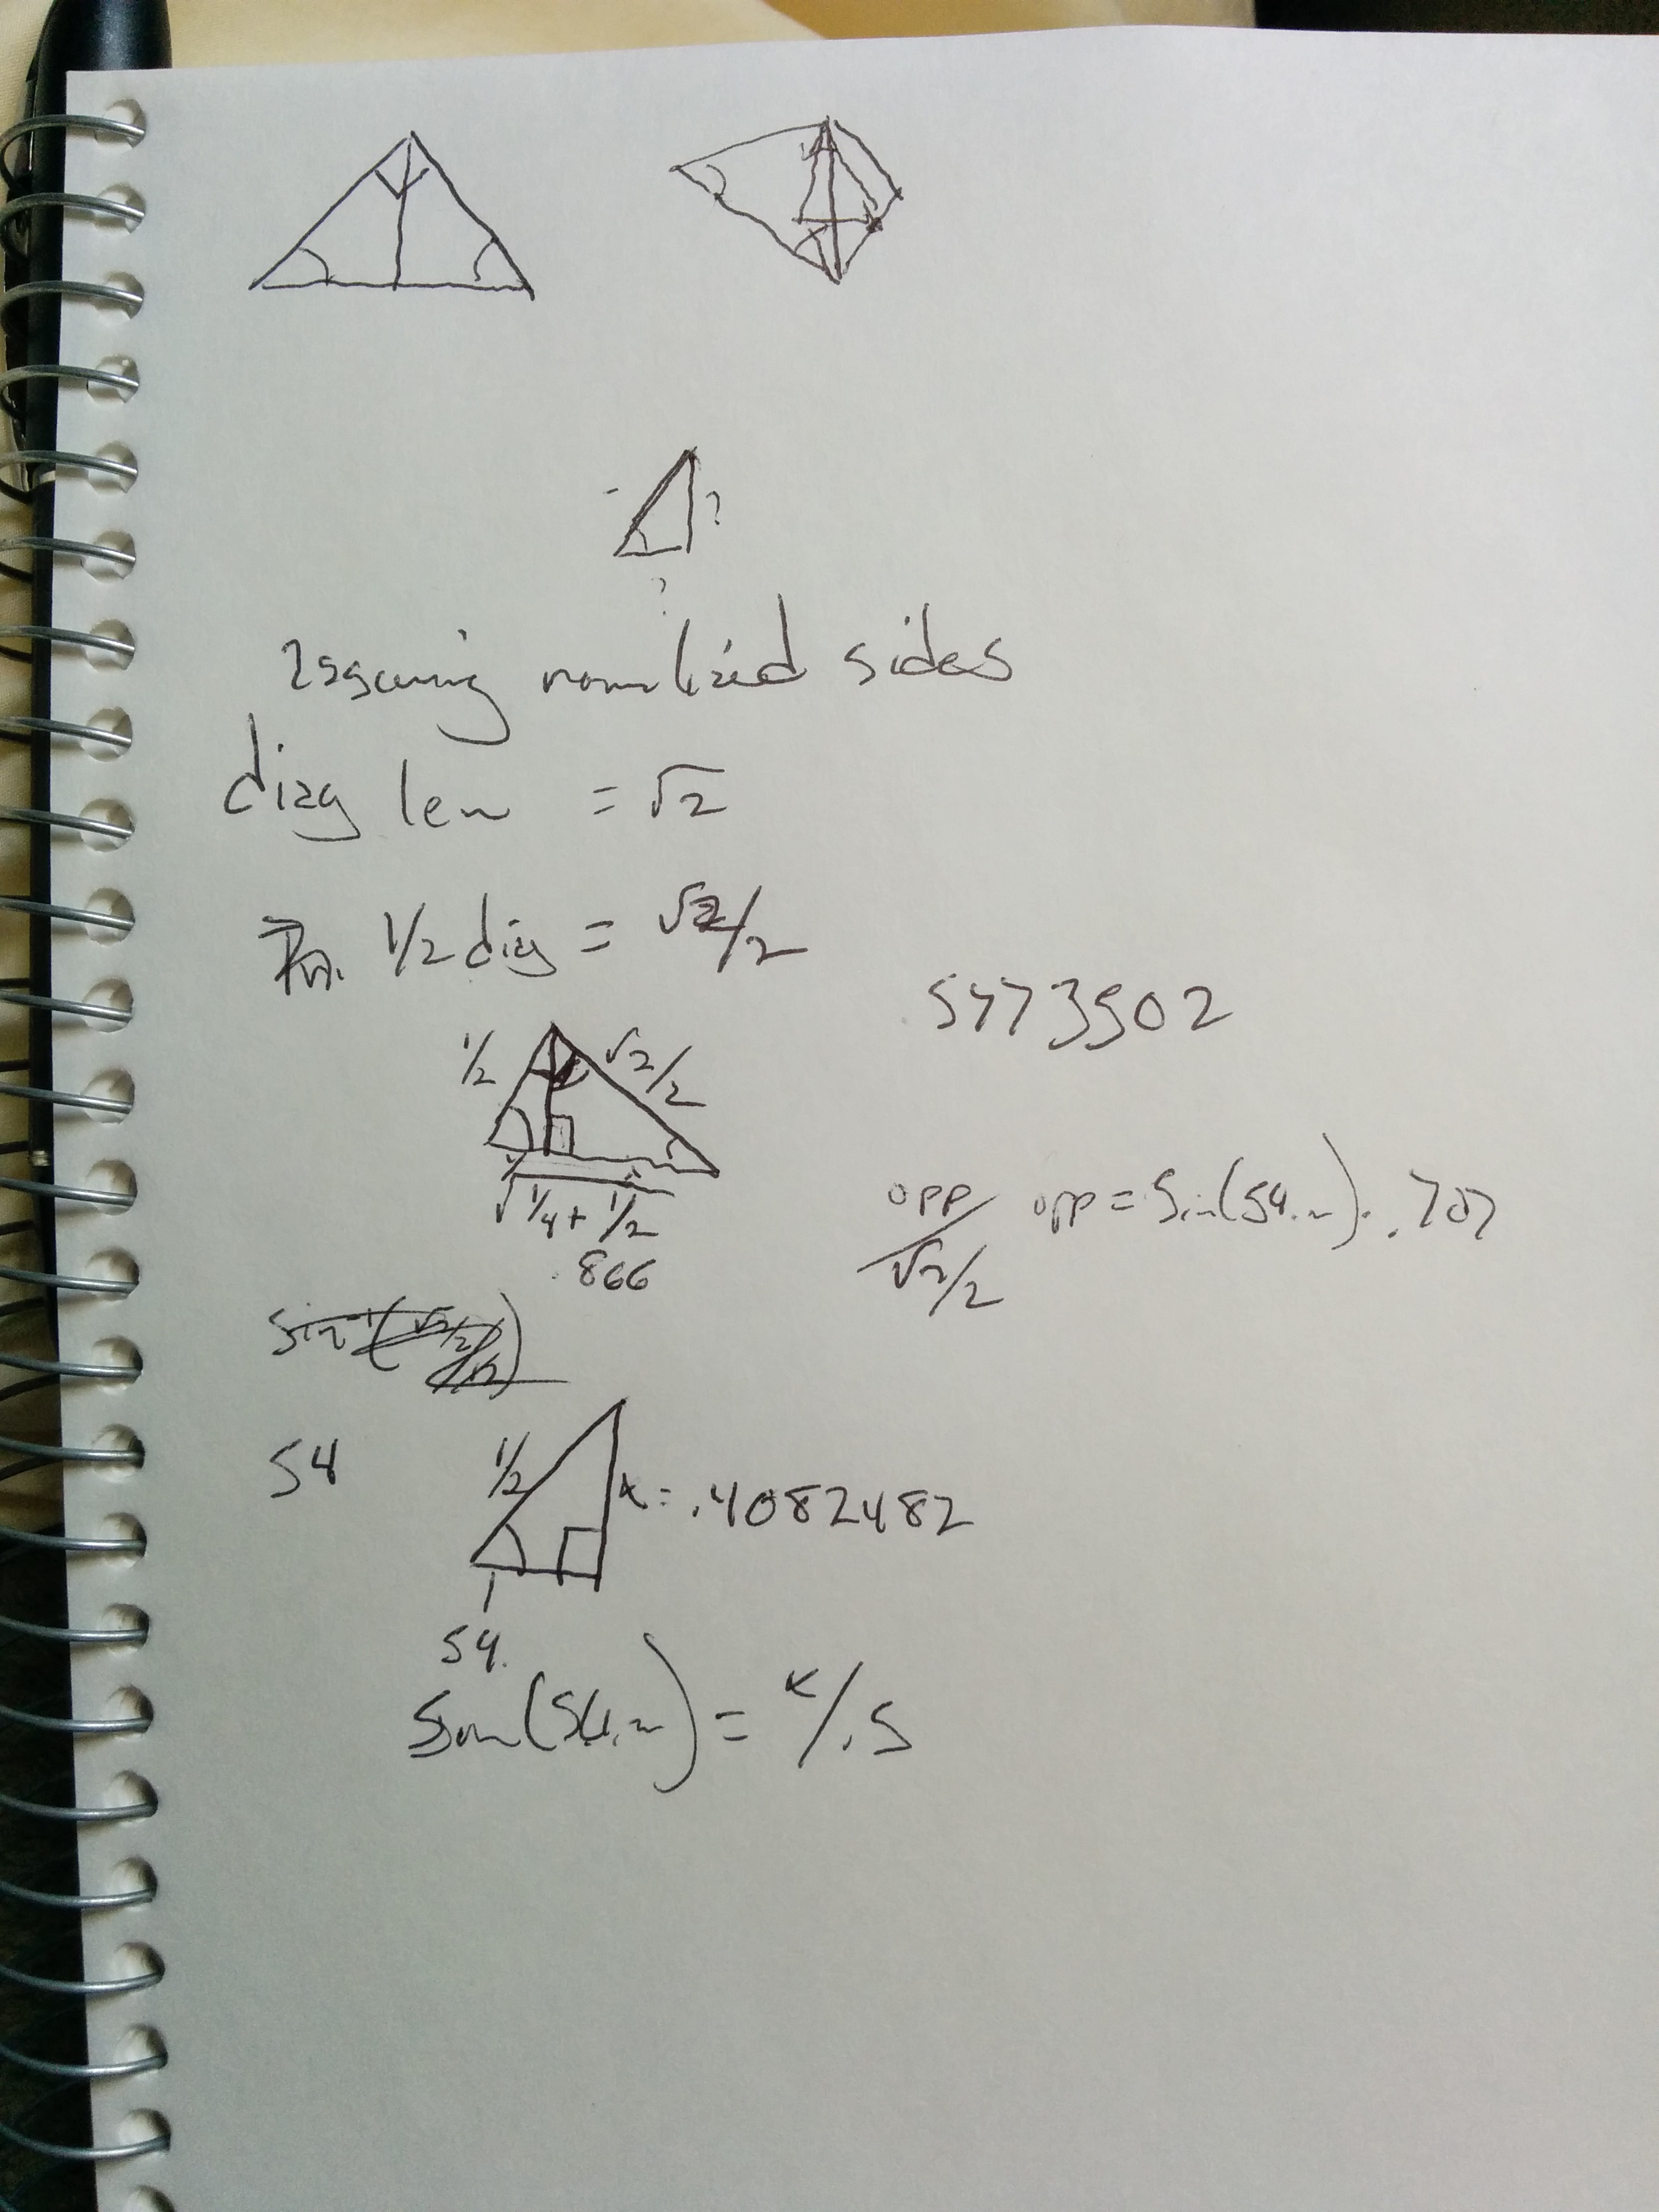 ?
?
assuming normalized sides
diag len = √2
1/2 diag = √2/2
.5773502
1/2 √2/2
√1/4 + 1/2
.866
opp/√2/2 opp = sin(54.~) · .707
sin⁻¹(√2/2/√2)
54 1/2 x = .4082482
54.
sin(54.~) = x/.5